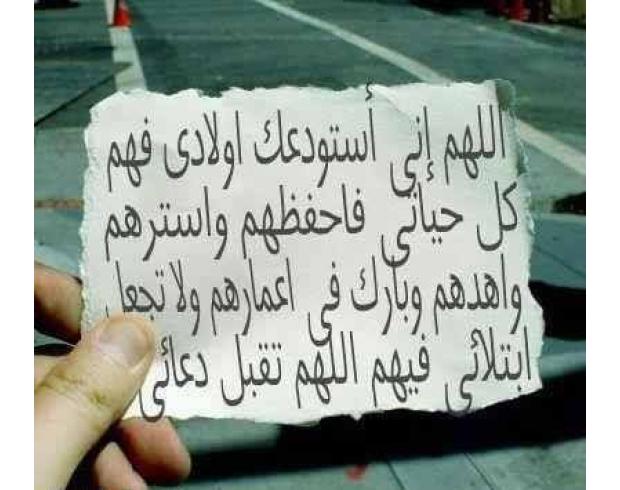 اللهم إني أستودعك اولادى فهم
كل حياتي فاحفظهم واسترهم
واهدهم وبارك في اعمارهم ولا تجعل
ابتلائي فيهم اللهم تقبل دعائي